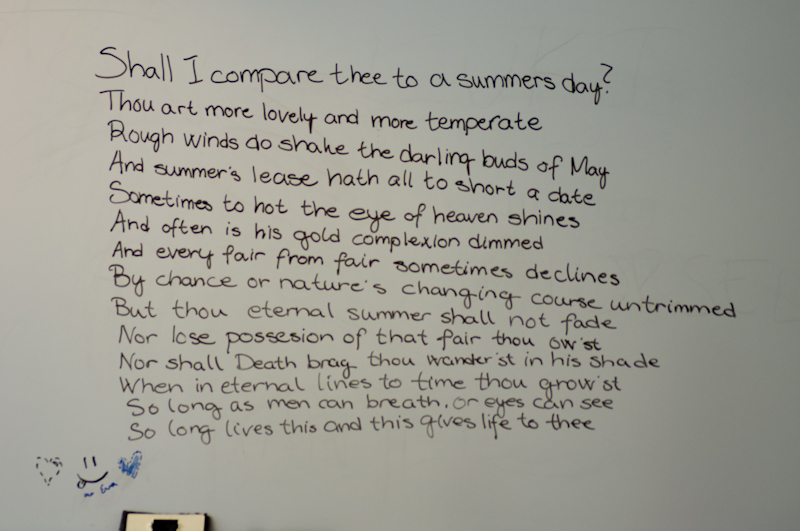 Shall I compare thee to a summers day?
Thou art more lovely and more temperate
Rough winds do shake the darling buds of May
And summer's lease hath all to short a date
Sometimes to hot the eye of heaven shines
And often is his gold complexion dimmed
And every fair from fair sometimes declines
By chance or nature's changing course untrimmed
But thou eternal summer shall not fade
Nor lose possesion of that fair thou ow'st
Nor shall Death brag thou wander'st in his shade
When in eternal lines to time thou grow'st
So long as men can breath, or eyes can see
So long lives this and this gives life to thee